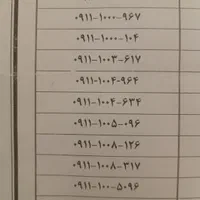 ۰۹۱۱-۱۰۰۰-۹۶۷
۰۹۱۱-۱۰۰۰-۱۰۴
۰۹۱۱-۱۰۰۳-۶۱۷
۰۹۱۱-۱۰۰۴-۹۶۴
۰۹۱۱-۱۰۰۴-۶۳۴
۰۹۱۱-۱۰۰۵-۰۹۶
۰۹۱۱-۱۰۰۸-۱۲۶
۰۹۱۱-۱۰۰۸-۳۱۷
۰۹۱۱-۱۰۰-۵۰۹۶